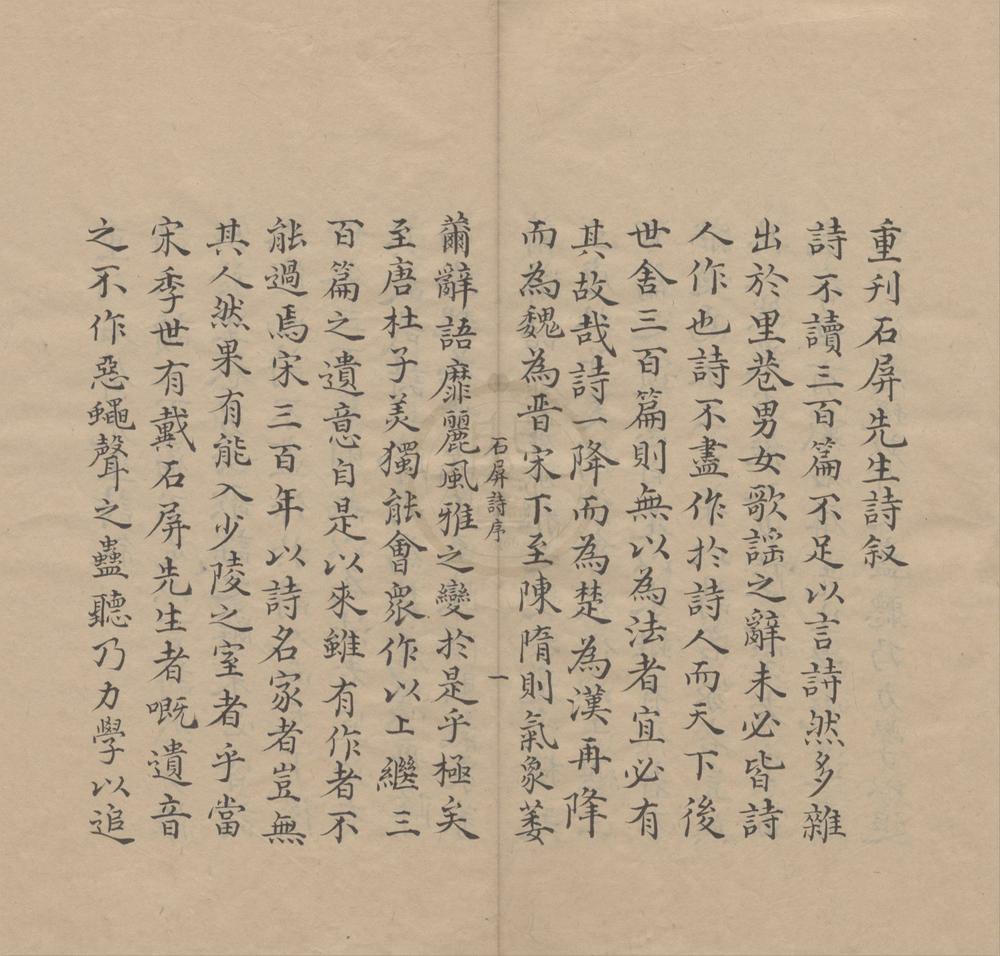 重刋石屏先生詩叙
詩不讀三百篇不足以言詩然多雜
出於里巷男女歌謡之辭未必皆詩
人作也詩不盡作於詩人而天下後
世舍三百篇則無以為法者宜必有
其故哉詩一降而為楚為漢再降
而為魏為晋宋下至陳隋則氣象萎
薾辭語靡麗風雅之變於是乎極矣
至唐杜子美獨能會衆作以上繼三
百篇之遺意自是以來雖有作者不
能過焉宋三百年以詩名家者豈無
其人然果有能入少陵之室者乎當
宋季世有戴石屏先生者嘅遺音
之不作惡蠅聲之蠱聽乃力學以追
石屏詩序
一